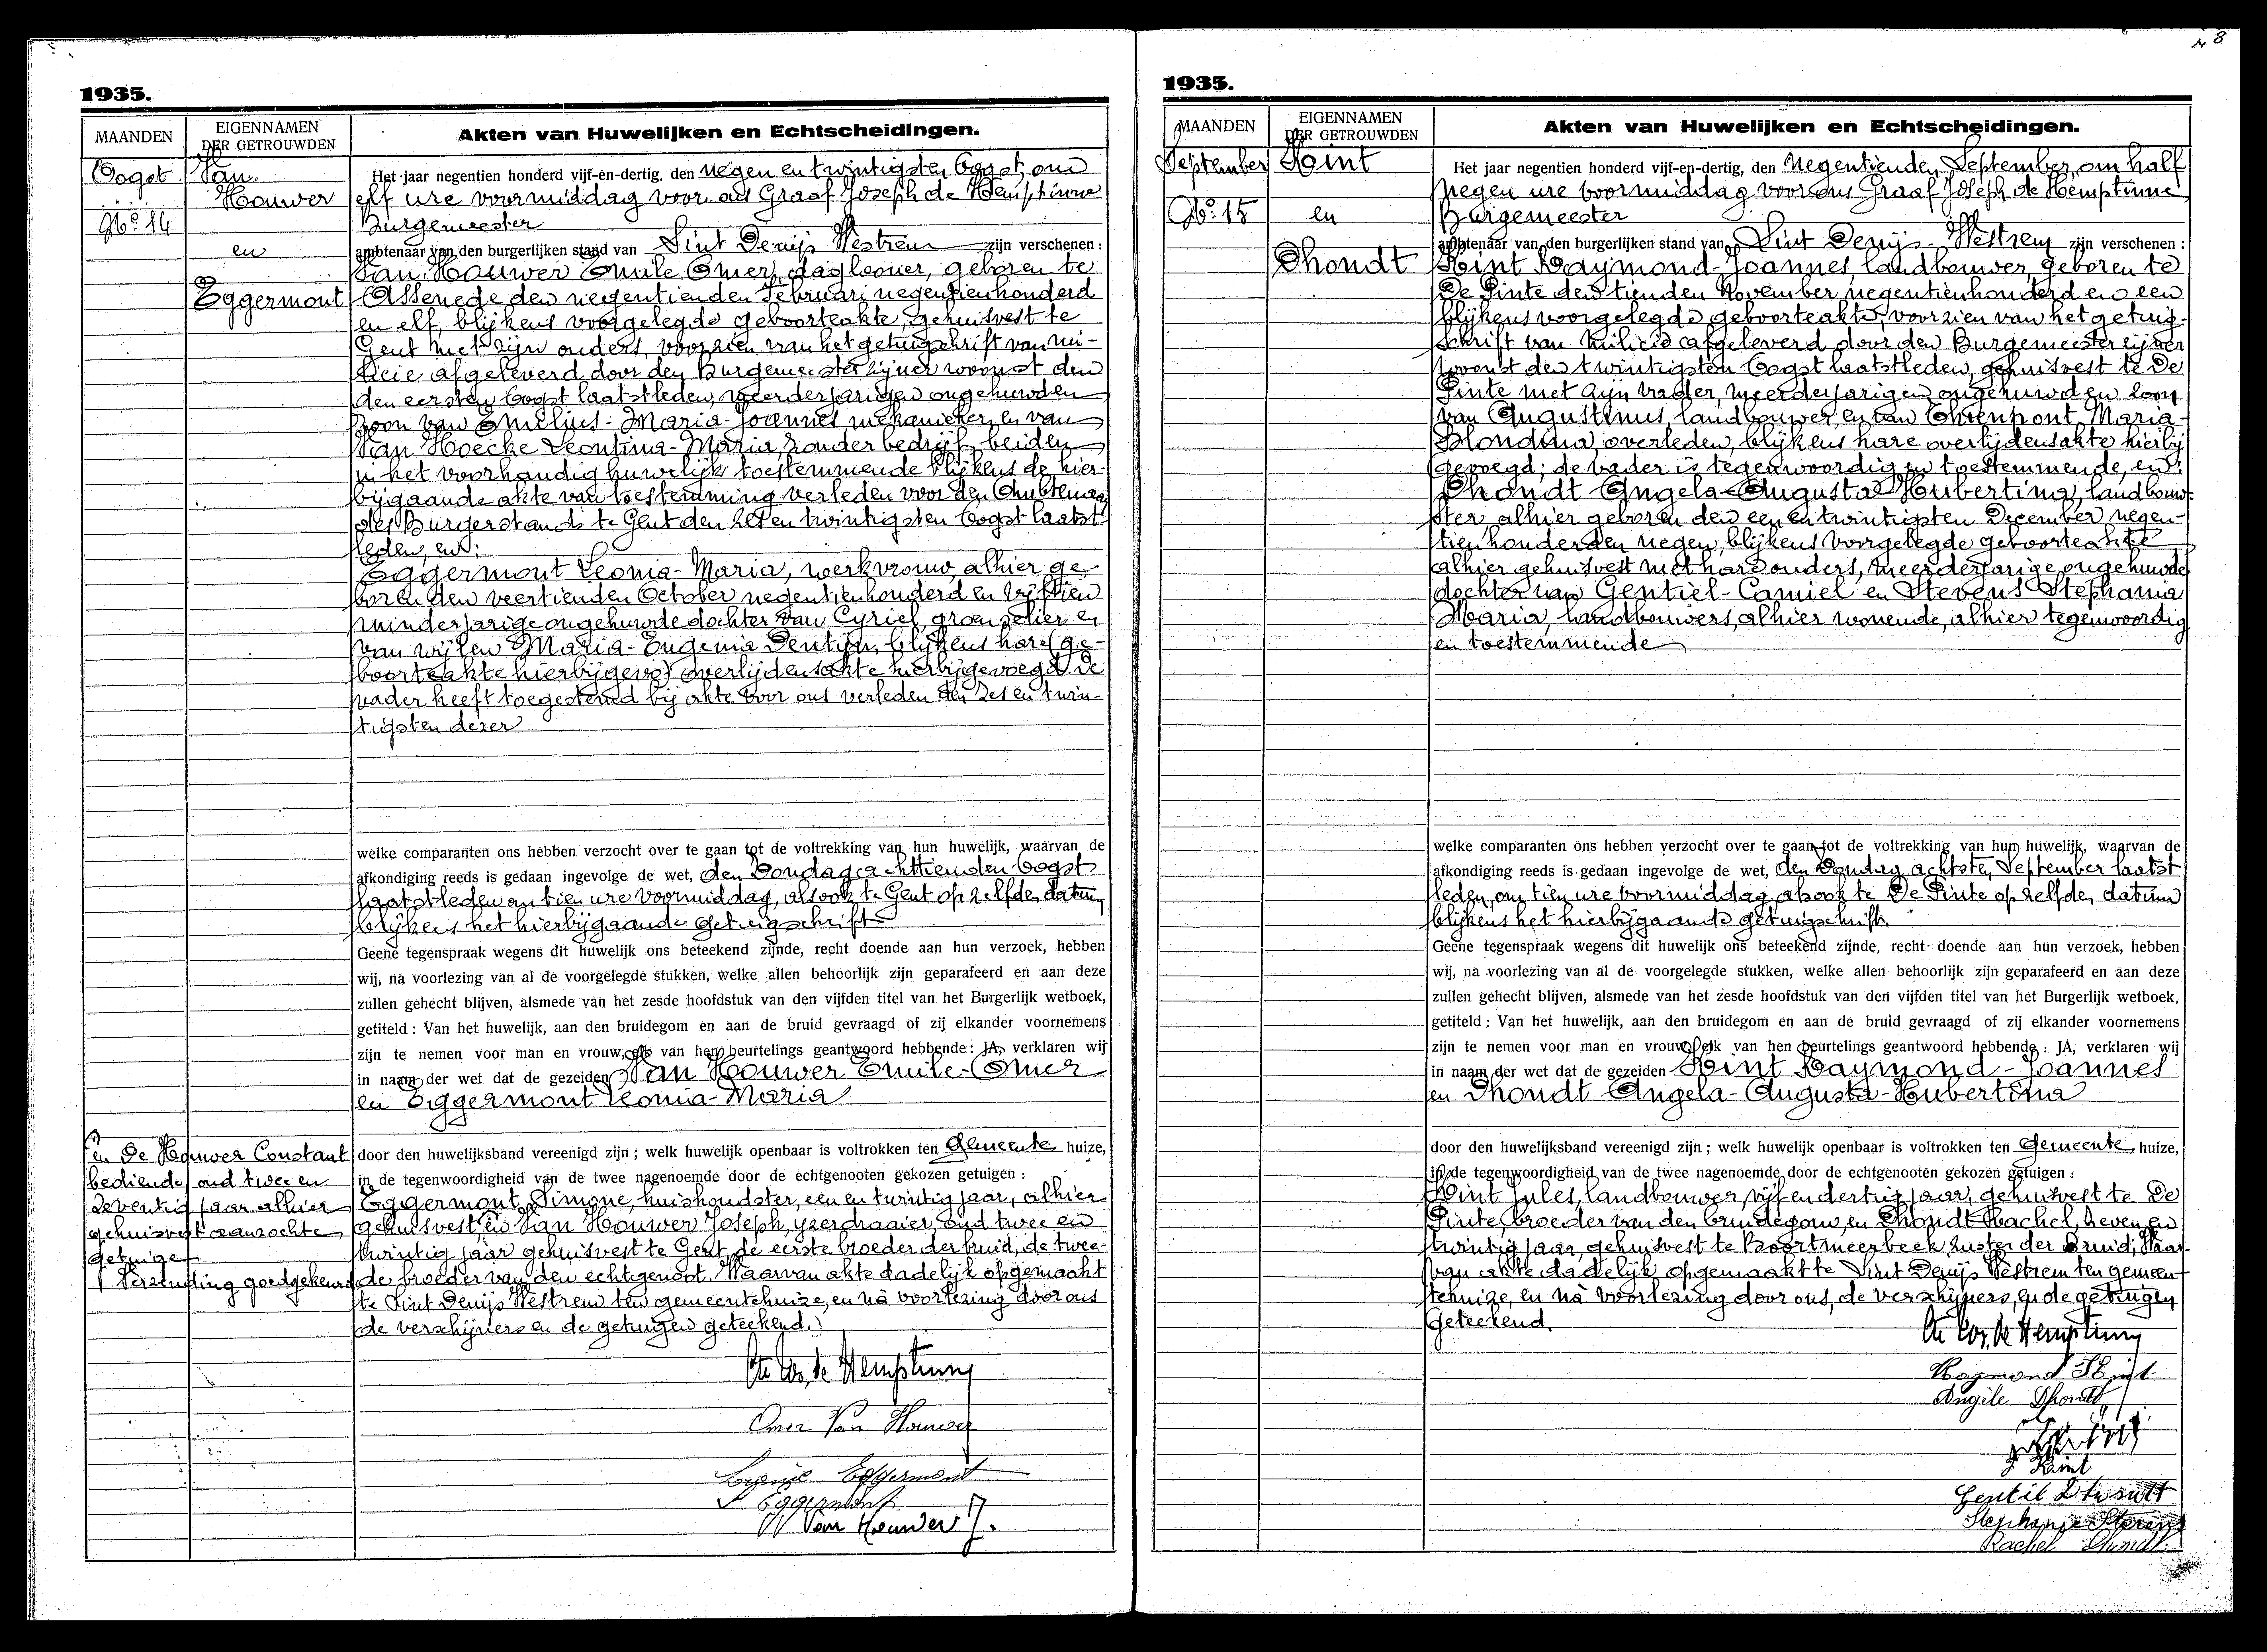 8
1935.
MAANDEN
EIGENNAMEN
DER GETROUWDEN
Akten van Huwelijken en Echtscheidingen.
Oogst
No. 14
Van
Houwer
en
Eggermont
Het jaar negentien honderd vijf-en-dertig, den negen en twintigsten Oogst, om
elf ure voormiddag voor ons Graaf Joseph de Hemptinne
Burgemeester
ambtenaar van den burgerlijken stand van Sint Denijs Westrem zijn verschenen :
Van Houwer Emile Omer, daglooner, geboren te
Assenede den negentienden Februari negentienhonderd
en elf, blijkens voorgelegde geboorteakte, gehuisvest te
Gent met zijn ouders, voorzien van het getuigschrift van mi-
licie afgeleverd door den Burgemeester zijner woonst den
den eersten Oogst laatstleden, meerderjarigen ongehuwden
zoon van Emelius-Maria-Joannes, mekanieker, en van
Van Hoecke Leontina-Maria, zonder bedrijf, beiden
in het voorhandig huwelijk toestemmende blijkens de hier-
bijgaande akte van toestemming verleden voor den Ambtenaar
des Burgerstands te Gent den zes en twintigsten Oogst laatst
leden, en:
Eggermont Leonia-Maria, werkvrouw, alhier ge-
boren den veertienden October negentienhonderd en vijftien
minderjarige ongehuwde dochter van Cyriel, en
van wijlen Maria-Eugenia Dentyn, blijkens hare (ge-
boorteakte hierbijgevo) overlijdensakte hierbijgevoegd. De
vader heeft toegestemd bij akte voor ons verleden den zes en twin-
tigsten dezer
welke comparanten ons hebben verzocht over te gaan tot de voltrekking van hun huwelijk, waarvan de
afkondiging reeds is gedaan ingevolge de wet, den Zondag achttienden Oogst
laatstleden om tien ure voormiddag, alsook te Gent op zelfden datum,
blijkens het hierbijgaande getuigschrift
Geene tegenspraak wegens dit huwelijk ons beteekend zijnde, recht doende aan hun verzoek, hebben
wij, na voorlezing van al de voorgelegde stukken, welke allen behoorlijk zijn geparafeerd en aan deze
zullen gehecht blijven, alsmede van het zesde hoofdstuk van den vijfden titel van het Burgerlijk wetboek,
getiteld : Van het huwelijk, aan den bruidegom en aan de bruid gevraagd of zij elkander voornemens
zijn te nemen voor man en vrouw, elk van hen beurtelings geantwoord hebbende : JA, verklaren wij
in naam der wet dat de gezeiden Van Houwer Emile-Omer
en Eggermont Leonia-Maria
door den huwelijksband vereenigd zijn ; welk huwelijk openbaar is voltrokken ten Gemeente huize,
in de tegenwoordigheid van de twee nagenoemde door de echtgenooten gekozen getuigen :
Eggermont Simone, huishoudster, een en twintig jaar, alhier
gehuisvest, en Van Houwer Joseph, yzerdraaier, oud twee en
twintig jaar gehuisvest te Gent de eerste broeder der bruid, de twee-
de broeder van den echtgenoot. Waarvan akte dadelijk opgemaakt
te Sint Denijs Westrem ten gemeentehuize, en nà voorlezing door ons
de verschijners en de getuigen geteekend.
en De Houwer Constant
bediende, oud twee en
zeventig jaar alhier
gehuisvest
getuige
Verzending goedgekeurd
Cte Jos. de Hemptinne
Omer Van Houwer
Eggermont
S Eggermont
Van Houwer J.
1935.
MAANDEN
EIGENNAMEN
DER GETROUWDEN
Akten van Huwelijken en Echtscheidingen.
September
No. 15
Hint
en
Dhondt
Het jaar negentien honderd vijf-en-dertig, den negentienden September, om half
negen ure voormiddag voor ons Graaf Joseph de Hemptinne
Burgemeester
ambtenaar van den burgerlijken stand van Sint Denijs-Westrem zijn verschenen :
Hint Raymond-Joannes, landbouwer, geboren te
De Pinte den tienden November negentienhonderd en een
blijkens voorgelegde geboorteakte, voorzien van het getuig-
schrift van milicie afgeleverd door den Burgemeester zijner
woonst den twintigsten Oogst laatstleden, gehuisvest te De
Pinte met zijn vader, meerderjarigen ongehuwden zoon
van Augustinus, landbouwer, en van Maria-
Blondina, overleden, blijkens hare overlijdensakte hierbij
gevoegd; de vader is tegenwoordig en toestemmende, en:
Dhondt Angela-Augusta-Hubertina, landbouw-
ster, alhier geboren den een en twintigsten December negen-
tienhonderd en negen, blijkens voorgelegde geboorteakte
alhier gehuisvest met hare ouders, meerderjarige ongehuwde
dochter van Gentiel-Camiel en Stevens Stephania
Maria, landbouwers, alhier wonende, alhier tegenwoordig
en toestemmende
welke comparanten ons hebben verzocht over te gaan tot de voltrekking van hun huwelijk, waarvan de
afkondiging reeds is gedaan ingevolge de wet, den Zondag achtsten September laatst
leden, om tien ure voormiddag, alsook te De Pinte op zelfden datum
blijkens het hierbijgaande getuigschrift.
Geene tegenspraak wegens dit huwelijk ons beteekend zijnde, recht doende aan hun verzoek, hebben
wij, na voorlezing van al de voorgelegde stukken, welke allen behoorlijk zijn geparafeerd en aan deze
zullen gehecht blijven, alsmede van het zesde hoofdstuk van den vijfden titel van het Burgerlijk wetboek,
getiteld : Van het huwelijk, aan den bruidegom en aan de bruid gevraagd of zij elkander voornemens
zijn te nemen voor man en vrouw, elk van hen beurtelings geantwoord hebbende : JA, verklaren wij
in naam der wet dat de gezeiden Hint Raymond-Joannes
en Dhondt Angela-Augusta-Hubertina
door den huwelijksband vereenigd zijn ; welk huwelijk openbaar is voltrokken ten Gemeente huize,
in de tegenwoordigheid van de twee nagenoemde door de echtgenooten gekozen getuigen :
Hint Jules, landbouwer, vijf en dertig jaar, gehuisvest te De
Pinte, broeder van den bruidegom, en Dhondt Rachel, zeven en
twintig jaar, gehuisvest te Boortmeerbeek, zuster der Bruid; Waar-
van akte dadelijk opgemaakt te Sint Denijs Westrem ten gemeen-
tehuize, en nà voorlezing door ons, de verschijners, en de getuigen
geteekend.
Cte Jos. de Hemptinne
Raymond Hint
Angèle Dhondt
J Hint
Gentil Dhondt
Stephanie Stevens
Rachel Dhondt